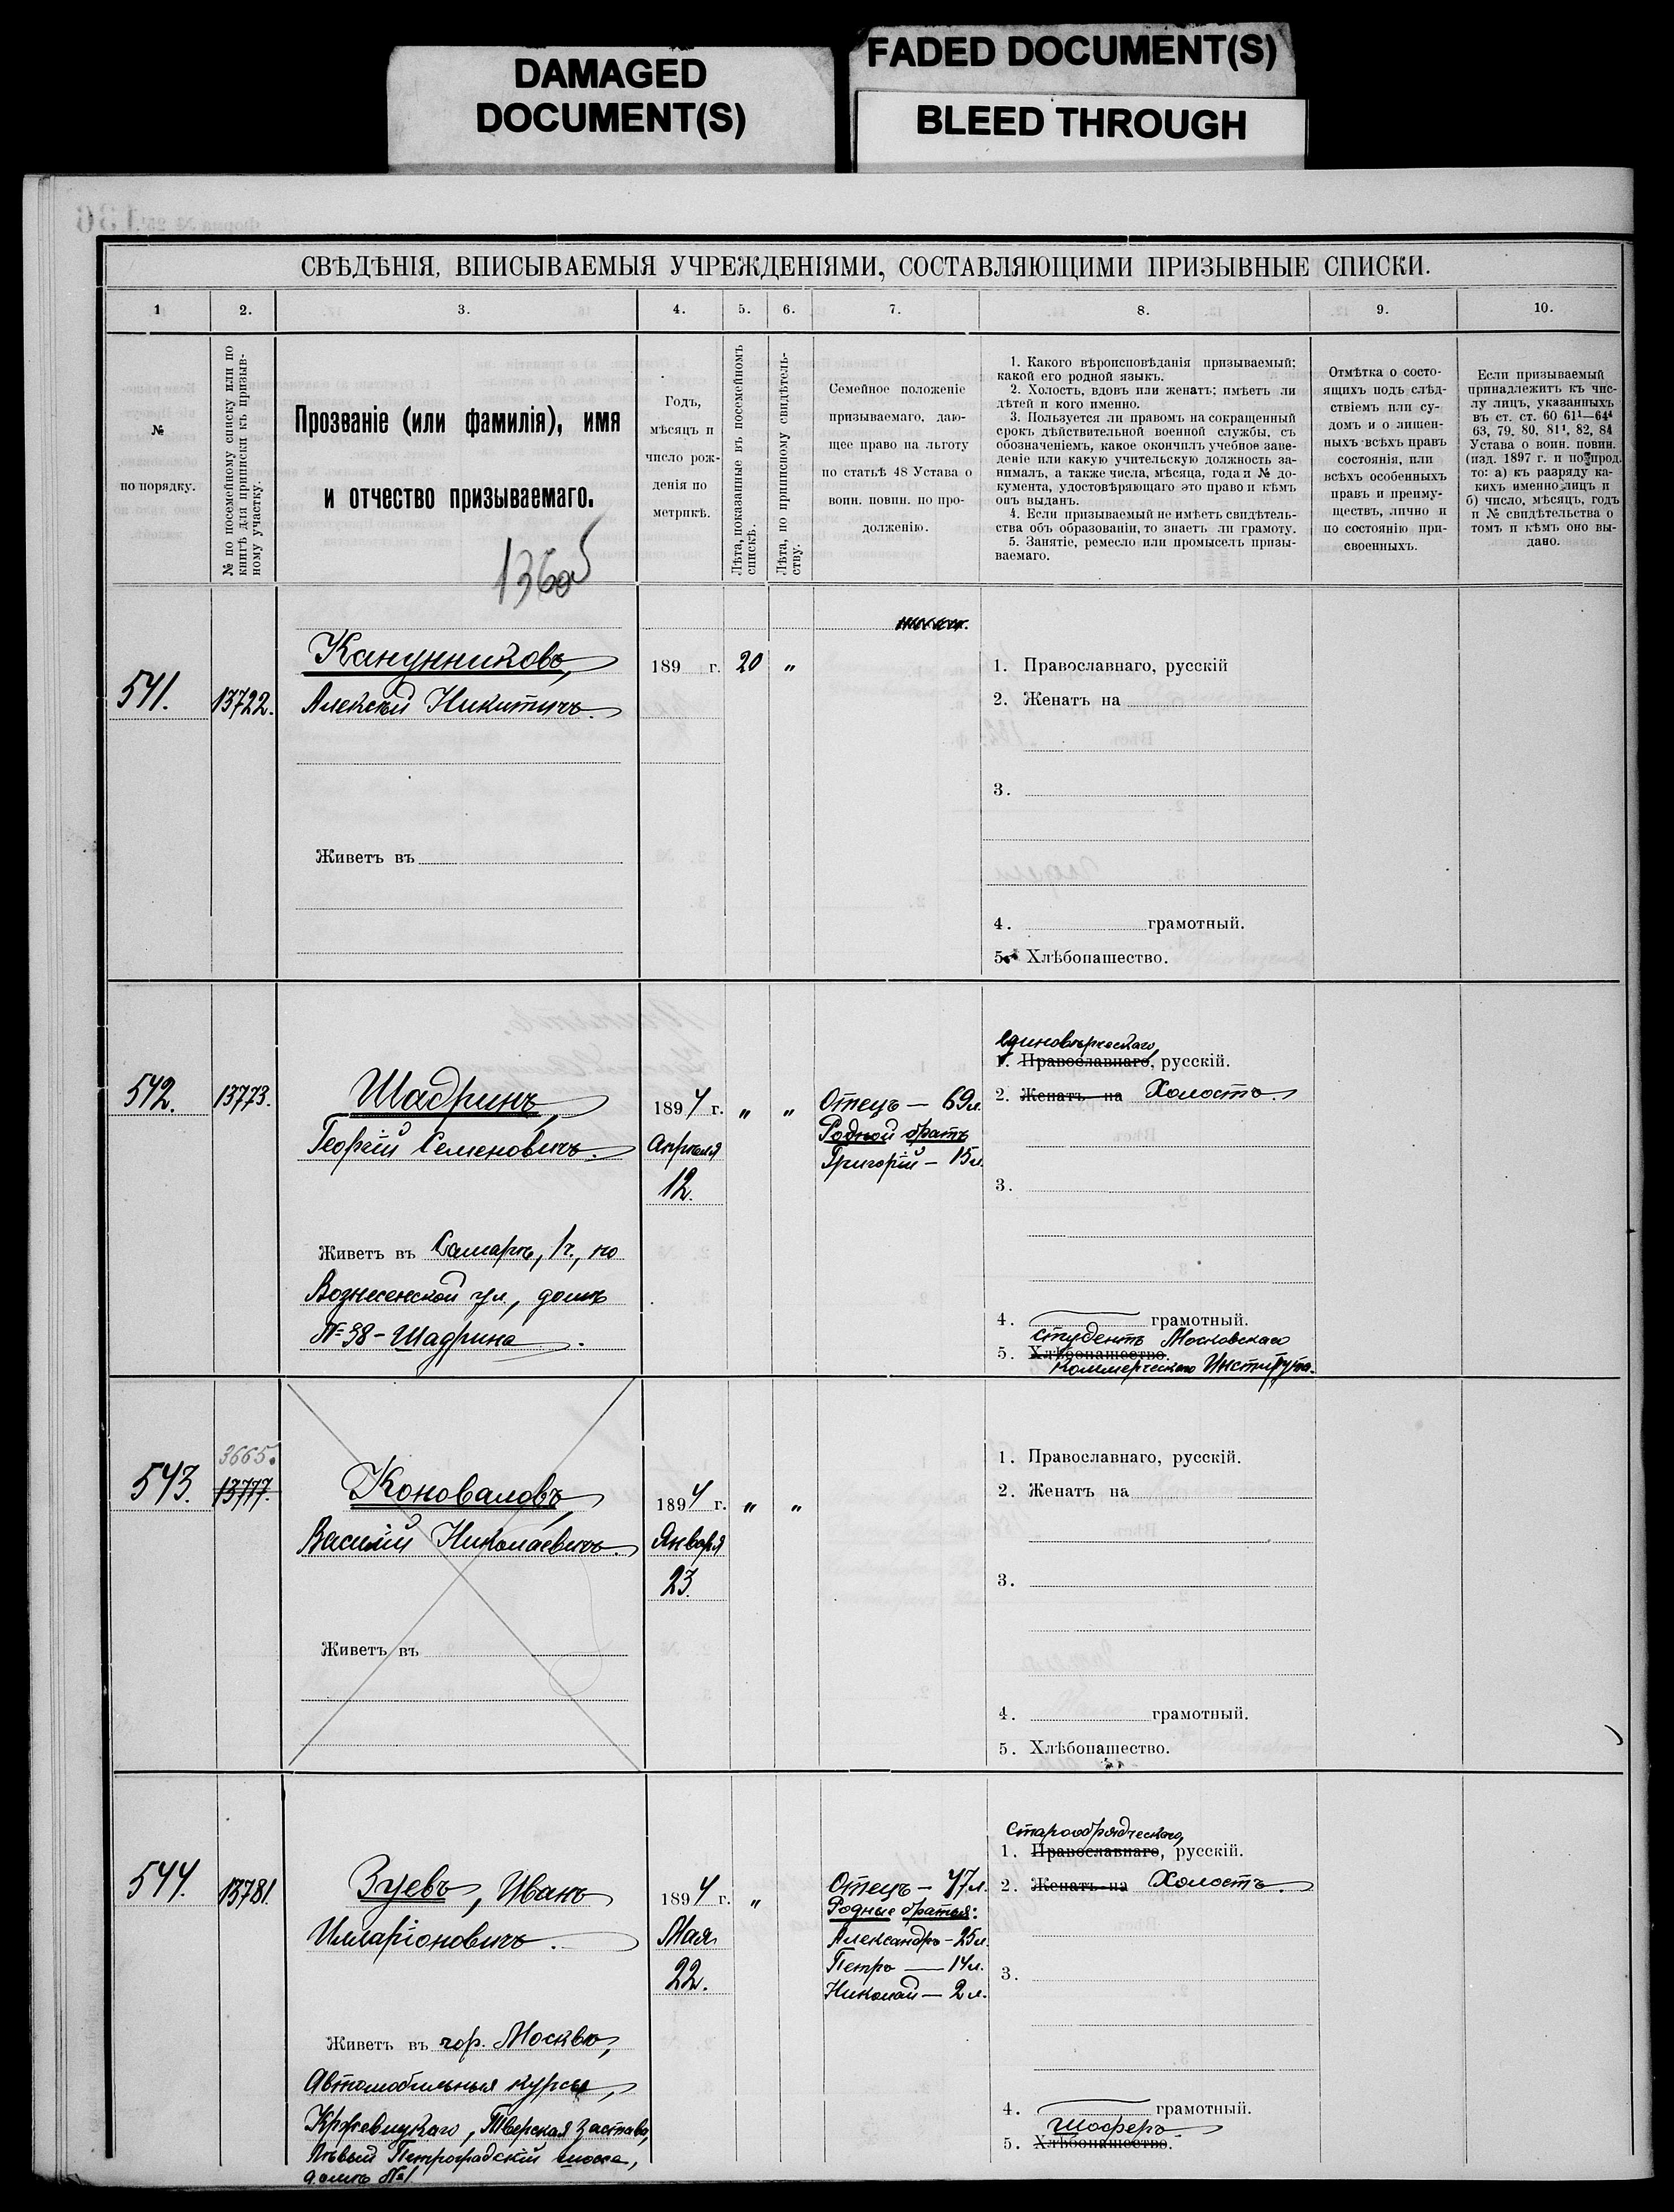 DAMAGED
DOCUMENT(S)
FADED DOCUMENT(S)
BLEED THROUGH
СВѢДѢНІЯ, ВПИСЫВАЕМЫЯ УЧРЕЖДЕНІЯМИ, СОСТАВЛЯЮЩИМИ ПРИЗЫВНЫЕ СПИСКИ.
1 2. 3. 4. 5. 6. 7. 8. 9. 10.
№
по порядку.
№ по посемейному списку или по
книгѣ для приписки къ призыв-
ному участку.
Прозваніе (или фамилія), имя
и отчество призываемаго.
Годъ,
мѣсяцъ и
число рож-
денія по
метрикѣ.
Лѣта, показанные въ посемейномъ
спискѣ.
Лѣта, по приписному свидѣтель-
ству.
Семейное положеніе
призываемаго, даю-
щее право на льготу
по статьѣ 48 Устава о
воин. повин. по про-
долженію.
1. Какого вѣроисповѣданія призываемый;
какой его родной языкъ.
2. Холостъ, вдовъ или женатъ; имѣетъ ли
дѣтей и кого именно.
3. Пользуется ли правомъ на сокращенный
срокъ дѣйствительной военной службы, съ
обозначеніемъ, какое окончилъ учебное заве-
деніе или какую учительскую должность за-
нималъ, а также числа, мѣсяца, года и № до-
кумента, удостовѣряющаго это право и кѣмъ
онъ выданъ.
4. Если призываемый не имѣетъ свидѣтель-
ства объ образованіи, то знаетъ ли грамоту.
5. Занятіе, ремесло или промыселъ призы-
ваемаго.
Отмѣтка о состо-
ящихъ подъ слѣд-
ствіемъ или су-
домъ и о лишен-
ныхъ всѣхъ правъ
состоянія, или
всѣхъ особенныхъ
правъ и преиму-
ществъ, лично и
по состоянію при-
своенныхъ.
Если призываемый
принадлежитъ къ чис-
лу лицъ, указанныхъ
въ ст. ст. 60 61¹—64⁴
63, 79, 80, 81¹, 82, 84
Устава о воин. повин.
(изд. 1897 г. и по прод.
то: а) къ разряду ка-
кихъ именно лицъ и
б) число, мѣсяцъ, годъ
и № свидѣтельства о
томъ и кѣмъ оно вы-
дано.
136об
541. 13722.
Канунниковъ,
Алексѣй Никитичъ.
Живетъ въ
189 г. 20 "
1. Православнаго, русскій
2. Женатъ на
3.
4. грамотный.
5. Хлѣбопашество.
542. 13773.
Шадринъ,
Георгій Семеновичъ.
Живетъ въ Самарѣ, 1ч., по
Вознесенской ул., домъ
№ 38 - Шадрина.
1894 г. " "
Апрѣля
12.
Отецъ — 69л.
Родной братъ
Григорій — 15л.
Единовѣрческаго,
1. Православнаго, русскій.
2. Женатъ на Холостъ.
3.
4. грамотный.
студентъ Московскаго
5. Хлѣбопашество.
Коммерческаго Института.
543. 3665.
13777.
Коноваловъ,
Василій Николаевичъ.
Живетъ въ
1894 г. " "
Января
23.
1. Православнаго, русскій.
2. Женатъ на
3.
4. грамотный.
5. Хлѣбопашество.
544. 13781.
Зуевъ, Иванъ
Илларіоновичъ.
Живетъ въ гор. Москвѣ,
Автомобильныя курсы,
Тверская застава,
Петроградскій шоссе,
домъ №1
1894 г. "
Мая
22.
Отецъ — 47л.
Родные братья:
Александръ — 25л.
Петръ — 14л.
Николай — 2 л.
Старообрядческаго,
1. Православнаго, русскій.
2. Женатъ на Холостъ.
3.
4. грамотный.
Шоферъ
5. Хлѣбопашество.